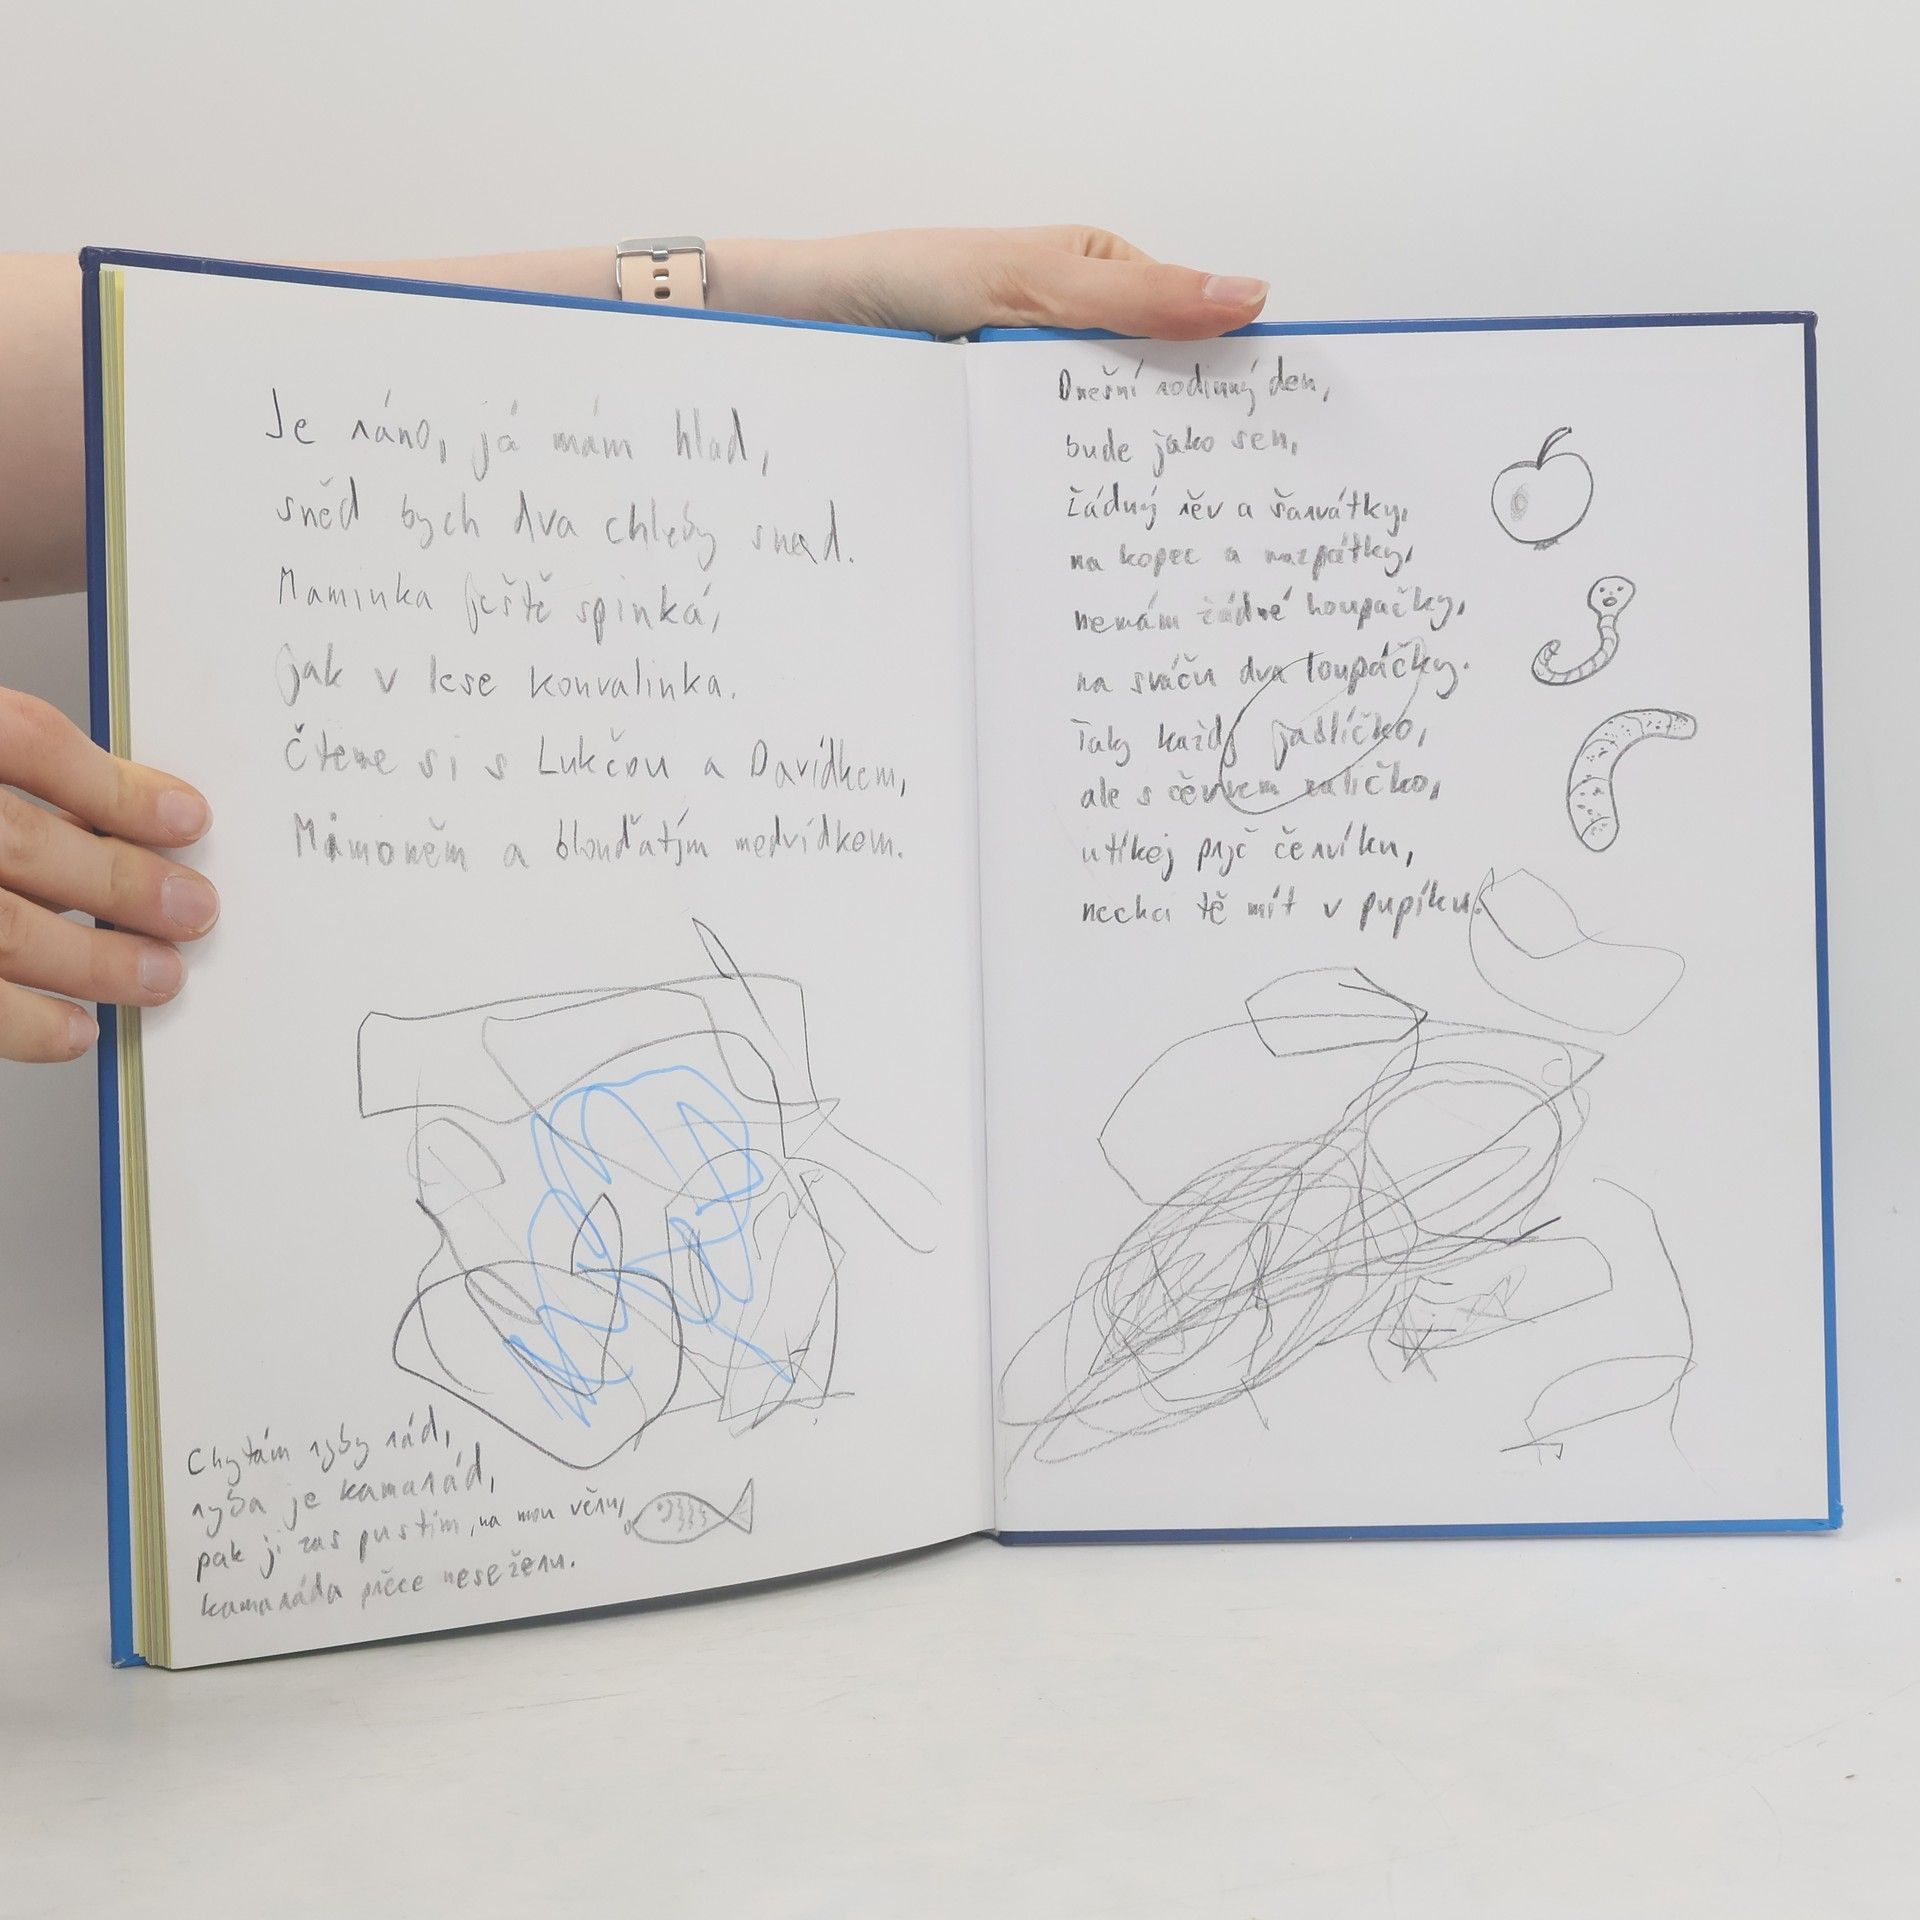 Je ráno, já mám hlad,
sněd bych dva chleby snad.
Maminka ještě spinká,
jak v lese konvalinka.
Čteme si s Lukčou a Davídkem,
Mimoněm a blouďatým medvídkem.
Chytám ryby rád,
ryba je kamarád,
pak ji zas pustím, na mou věru,
kamaráda přece nesežeru.
Dnešní rodinný den,
bude jako sen,
žádný řev a šarvátky,
na kopec a nazpátky,
nemám žádné houpačky,
na sváču dva loupáčky.
Taky každý jablíčko,
ale s červem maličko,
utíkej pryč červíku,
nechci tě mít v pupíku.